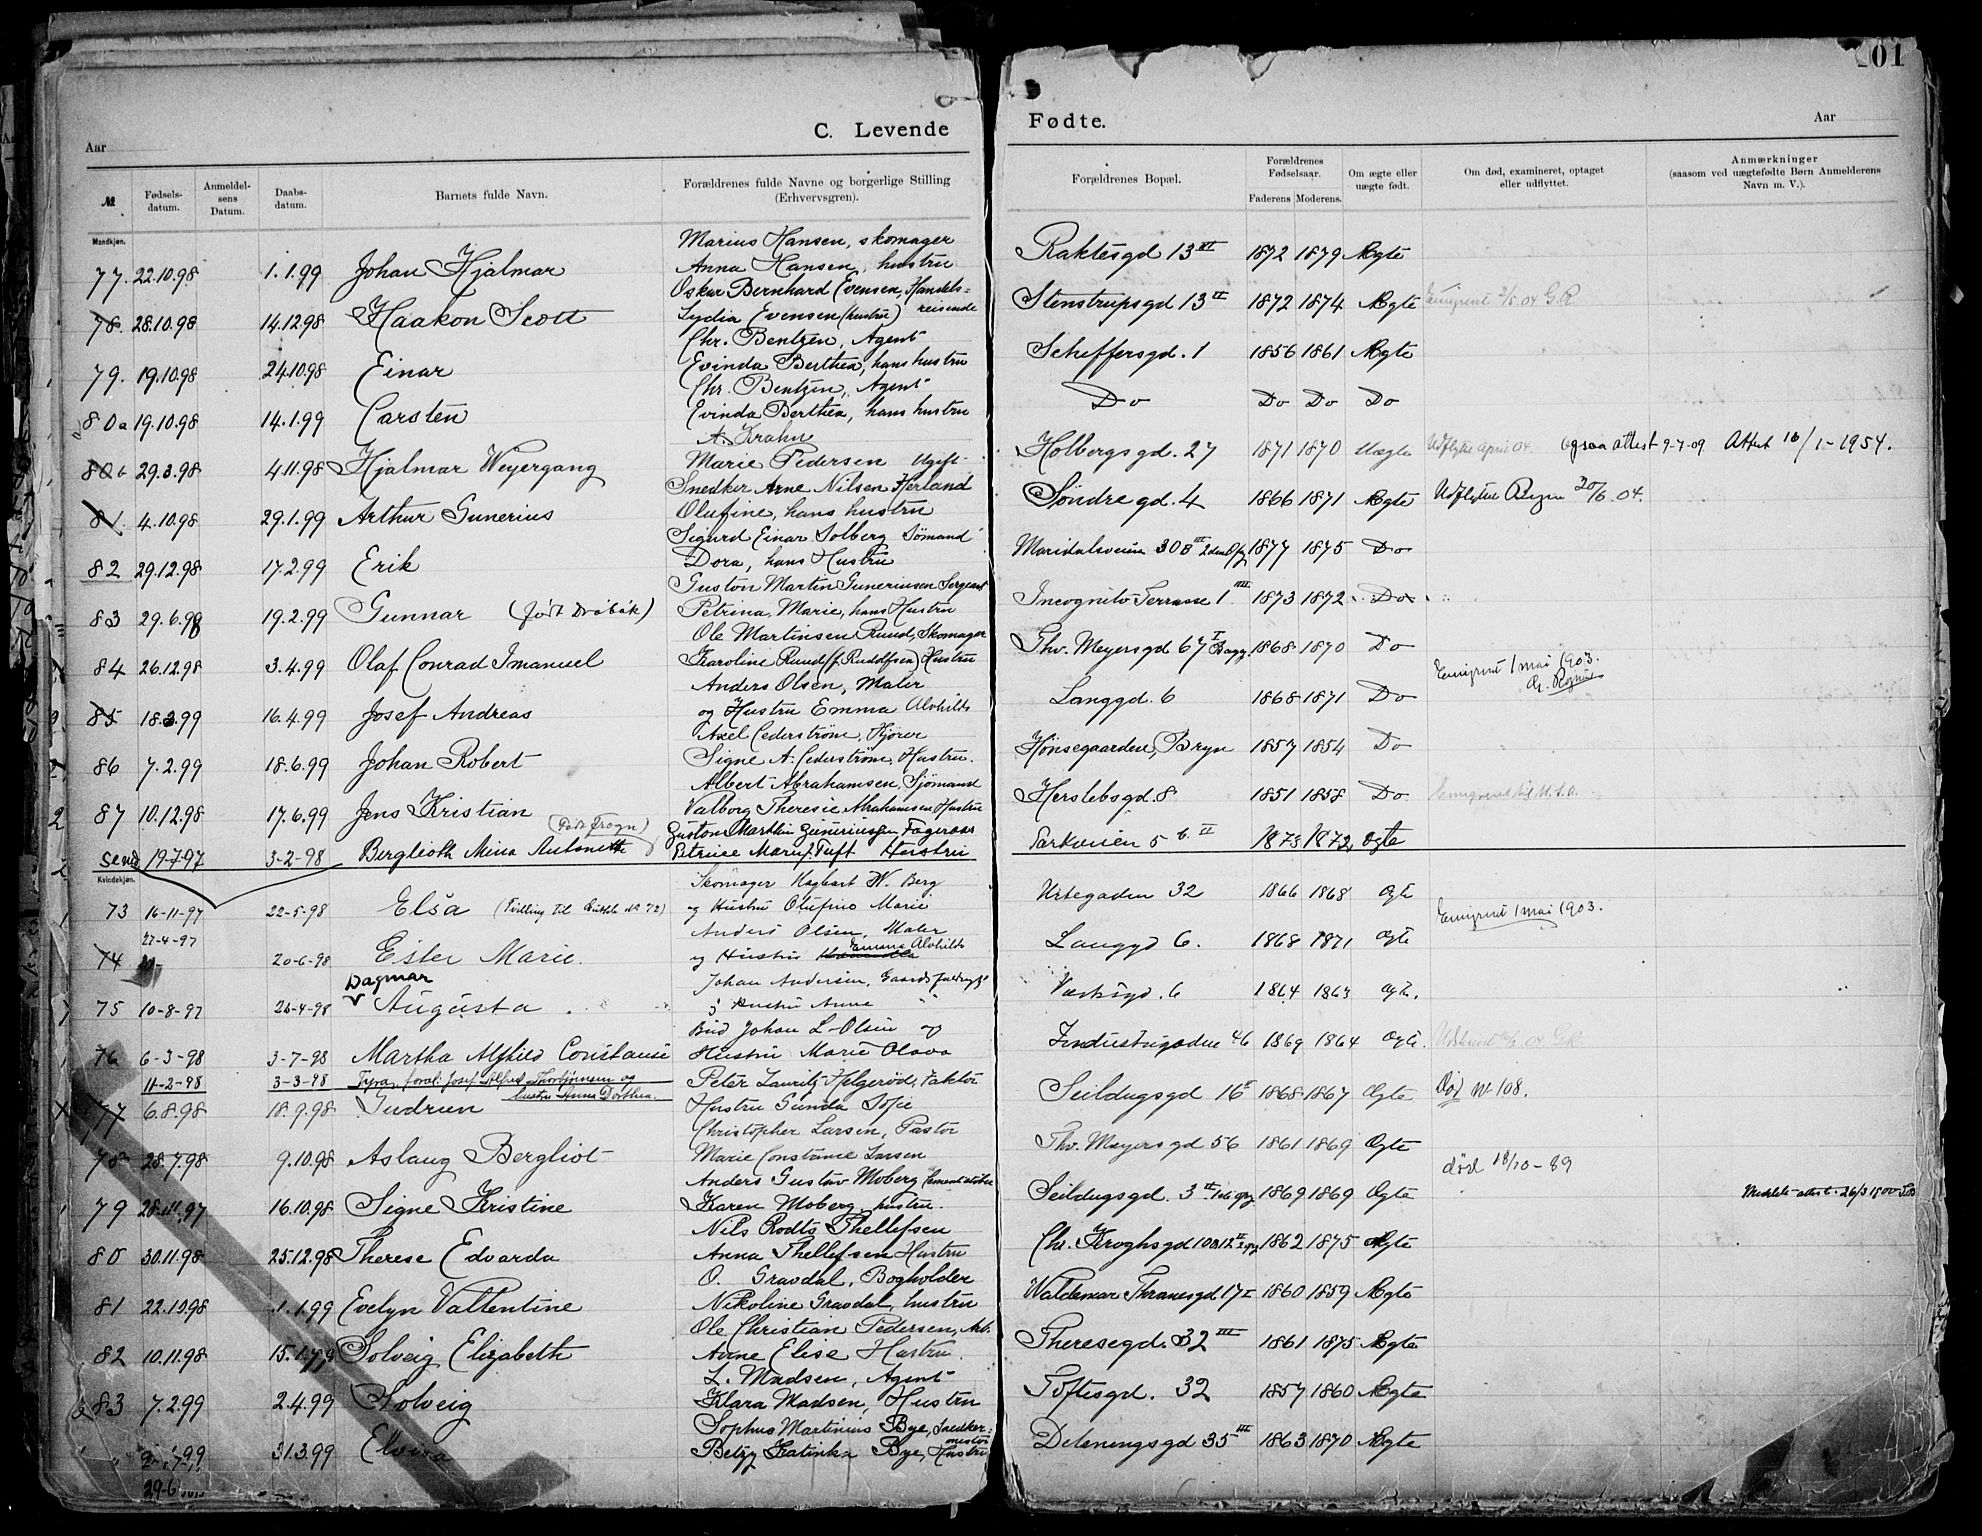 01
C. Levende
Fødte.
Aar
Aar
№ Fødselsdatum. Anmeldelsens Datum. Daabsdatum. Barnets fulde Navn. Forældrenes fulde Navne og borgerlige Stilling (Erhvervsgren). Forældrenes Bopæl. Forældrenes Fødselsaar. Faderens Moderens. Om ægte eller uægte født. Om død, examineret, optaget eller udflyttet. Anmærkninger (saasom ved uægtefødte Børn Anmelderens Navn m. V.).
Mandkjøn.
Marius Hansen, skomager
77. 22.10.98 1.1.99 Johan Hjalmar Anna Hansen, hustru Raktesgd 13 III 1872 1879 Ægte
Oskar Bernhard Evensen, Handels=
78. 28.10.98 14.12.98 Haakon Scott Lydia Evensen (hustru) reisende Stenstrupsgd 13 II 1872 1874 Ægte Emigrent 2/5.04 G.R
Chr. Bentzen, Agent
79. 19.10.98 24.10.98 Einar Evinda Berthea, hans hustru Scheffersgd. 1 1856 1861 Ægte
Chr. Bentzen, Agent
80a 19.10.98 14.1.99 Carsten Evinda Berthea, hans hustru Do Do Do Do
A. Krahn
80b 29.3.98 4.11.98 Hjalmar Weyergang Marie Pedersen Ugift Holbergsgd. 27 1871 1870 Uægte Udflyttet april 04. ogsaa attest 9-7-09 Attest 16/1-1954.
Snedker Arne Nilsen Herland
81. 4.10.98 29.1.99 Arthur Gunerius Olufine, hans hustru Søndre gd. 4 1866 1871 Ægte Udflyttet Bryn 20/6.04.
Sigurd Einar Solberg Sömand
82 29.12.98 17.2.99 Erik Dora, hans Hustru Maridalsveien 30B III 2den Opg 1877 1875 Do
Guston Martin Guneriusen Sergeant
83 29.6.98 19.2.99 Gunnar (født Drøbak) Petrina, Marie, hans Hustru Incognito Terrasse 1 IIII 1873 1872 Do
Ole Martinsen Ruud, Skomager
84 26.12.98 3.4.99 Olaf Conrad Imanuel Karoline Ruud (f. Rudolfsen) Hustru Thv. Meyersgd 67 I Bagg. 1868 1870 Do
Anders Olsen, Maler
85 18.3.99 16.4.99 Josef Andreas og Hustru Emma Alvhilde Langgd. 6 1868 1871 Do Emigrent 1 mai 1903.
Axel Cederström, Kjører
86 7.2.99 18.6.99 Johan Robert Signe A. Cederström, Hustru. Hønsegaarden, Bryn 1857 1854 Do
Albert Abrahamsen, Sjömand
87 10.12.98 17.6.99 Jens Kristian Valborg Theresie Abrahamsen Hustru Herslebsgd. 8 1851 1858 Do Emigreret til U.S.A.
(Født Frogn) Gustom Marthin Guneriussen Fageraas
19-7-97 3-2-98 Berglioth Mina Antonette Petrine Marie f. Tuft Hustru Parkveien 5 b. II 1873 1872, Ægte
Kvindekjøn.
Skomager Hagbart W. Berg
73 16-11-97 22-5-98 Elsa (Tvilling til Guttebarn № 72) og Hustru Olufine Marie Urtegaden 32 1866 1868 Ægte
27-4-97 Anders Olsen, Maler
74 20-6-98 Ester Marie. og Hustru Emma Alvhilde Langgd 6. 1868 1871 Ægte Emigrent 1 mai 1903.
Dagmar Johan Andersen, Gaardsfuldmægt.
75 10-8-97 26-4-98 Augusta Hustru Anne Verksgd. 6 1864 1863 Ægte.
Bud Johan L. Olsen og
76 6-3-98 3-7-98 Martha Alfhild Constanse Hustru Marie Olava Industrigaden 46 1869 1864 Ægte
11-2-98 3-3-98 Fyra, foræl. Josef Alfred Thorbjørnsen og hustru Anna Dorthea. Peter Lauritz Helgerød, Faktor
77 6.8.98 18.9.98 Gudrun Hustru Gunda Sofie Seildugsgd 16 II 1868 1867 Ægte Død № 108.
Christopher Larsen, Pastor
78 28.7.98 9.10.98 Aslaug Bergliot Marie Constance Larsen Thv. Meyersgd 56 1861 1869 Ægte død 18/10-89
Anders Gustav Moberg Cementstøber
79 28.11.97 16.10.98 Signe Kristine Karen Moberg, hustru. Seildugsgd. 3 II 1ste opg 1869 1869 Ægte
Nils Rodts Thellefsen
80 30.11.98 25.12.98 Therese Edvarda Anna Thellefsen Hustru Chr. Kroghsgd 1862 1875 Ægte
O. Gravdal, Bogholder
81 22.10.98 1.1.99 Evelyn Vallentine Nikoline Gravdal, hustru Waldemar Thranesgd 17 I 1860 1859 Ægte
Ole Christian Pedersen, Arb.
82 10.11.98 15.1.99 Solveig Elizabeth Anne Elise Hustru Theresegd. 32 III 1861 1875 Ægte
L. Madsen, Agent
83 7.2.99 2.4.99 Solveig Klara Madsen, Hustru Toftesgd. 32 1857 1860 Ægte
Sophus Martinius Bye, Snedker=
31.3.99 Elvisa Betzy Katinka Bye, Hustru mester Deleningsgd 35 III 1863 1870 Ægte
29-6